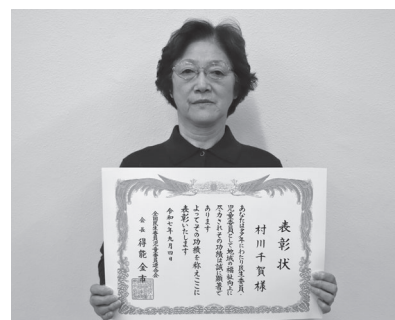 表彰状
村川千賀様
あなたは多年にわたり民生委員
児童委員として地域の福祉向上に
尽力されその功績は誠に顕著で
あります
よってその功績を称えここに
表彰いたします
令和七年九月四日
全国民生委員児童委員連合会
会長 得能金市